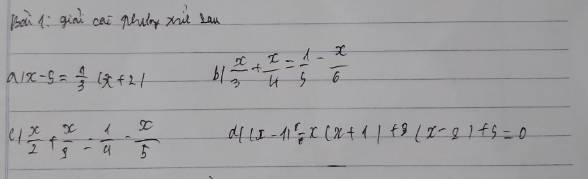 Bài 1: giải các phương trình sau
a) x - 5 = 1/3 (x + 2)
b) x/3 + x/4 = 1/5 - x/6
c) x/2 + x/3 = 1/4 - x/5
d) (x - 1) x (x + 1) + (x - 2) + 5 = 0